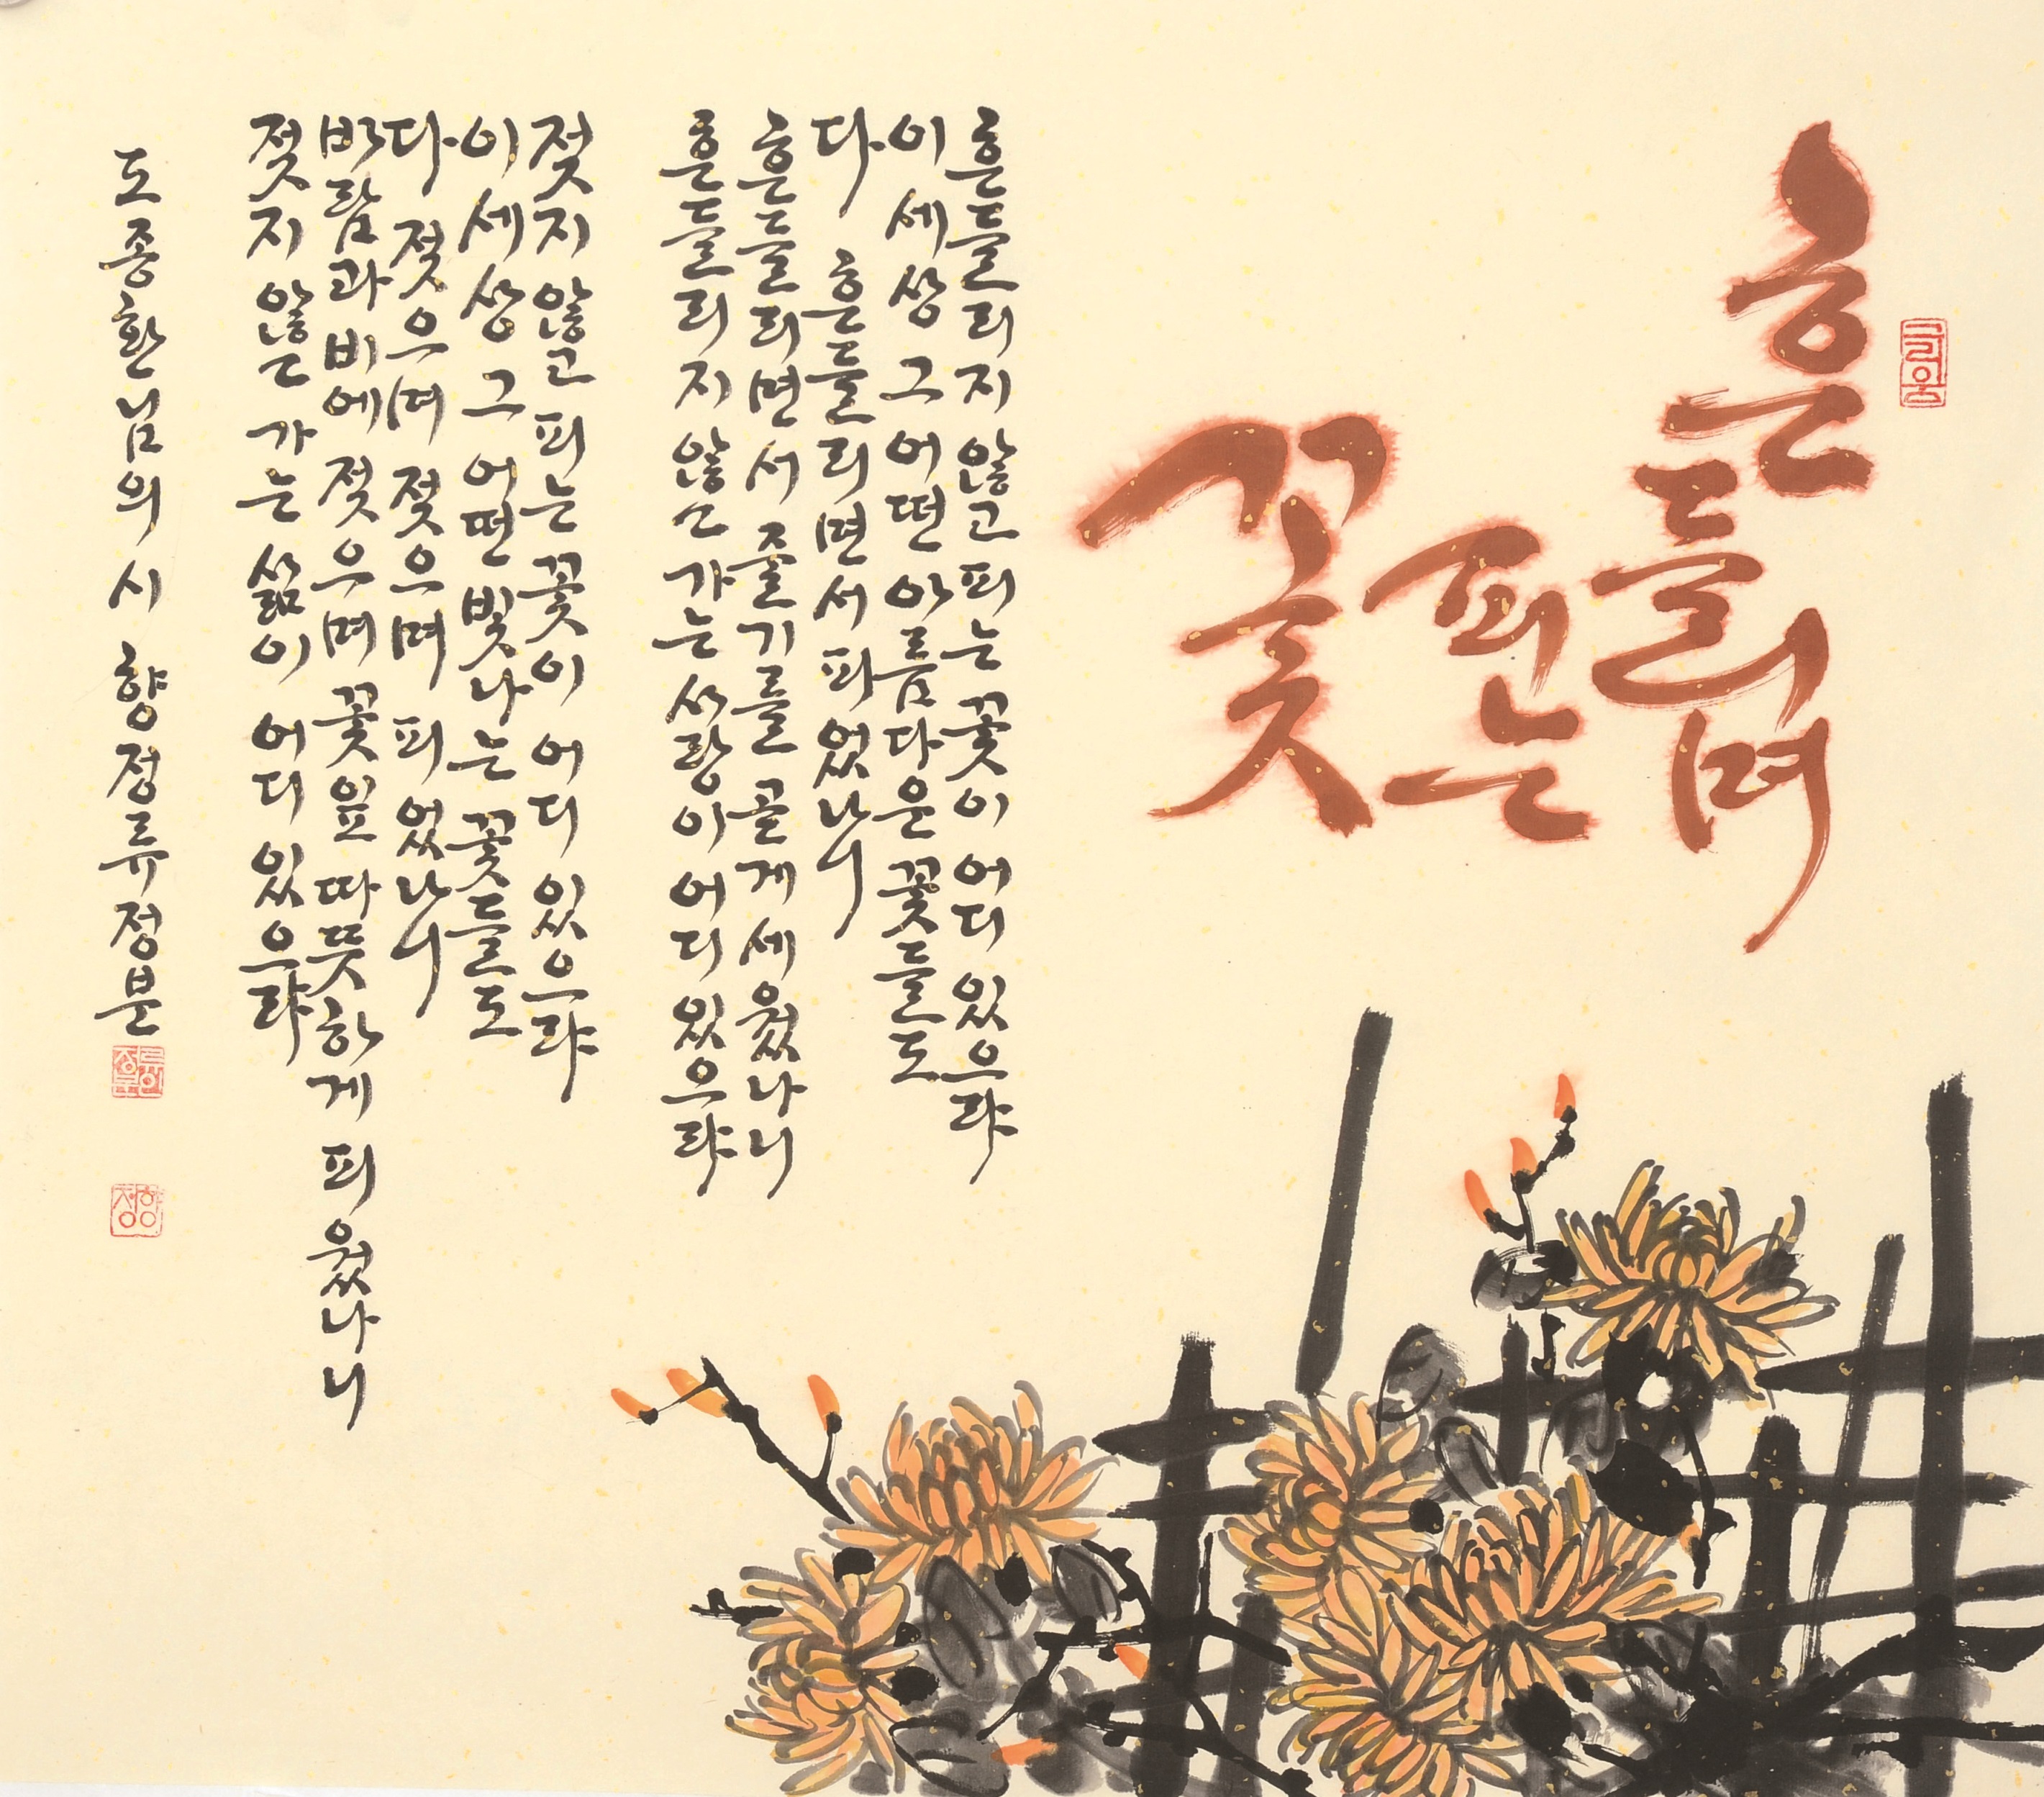 흔들리며
피는
꽃
흔들리지 않고 피는 꽃이 어디 있으랴
이 세상 그 어떤 아름다운 꽃들도
다 흔들리면서 피었나니
흔들리면서 줄기를 곧게 세웠나니
흔들리지 않고 가는 사랑이 어디 있으랴
젖지 않고 피는 꽃이 어디 있으랴
이 세상 그 어떤 빛나는 꽃들도
다 젖으며 젖으며 피었나니
바람과 비에 젖으며 꽃잎 따뜻하게 피웠나니
젖지 않고 가는 삶이 어디 있으랴
도종환님의 시 향정 류정분
향정